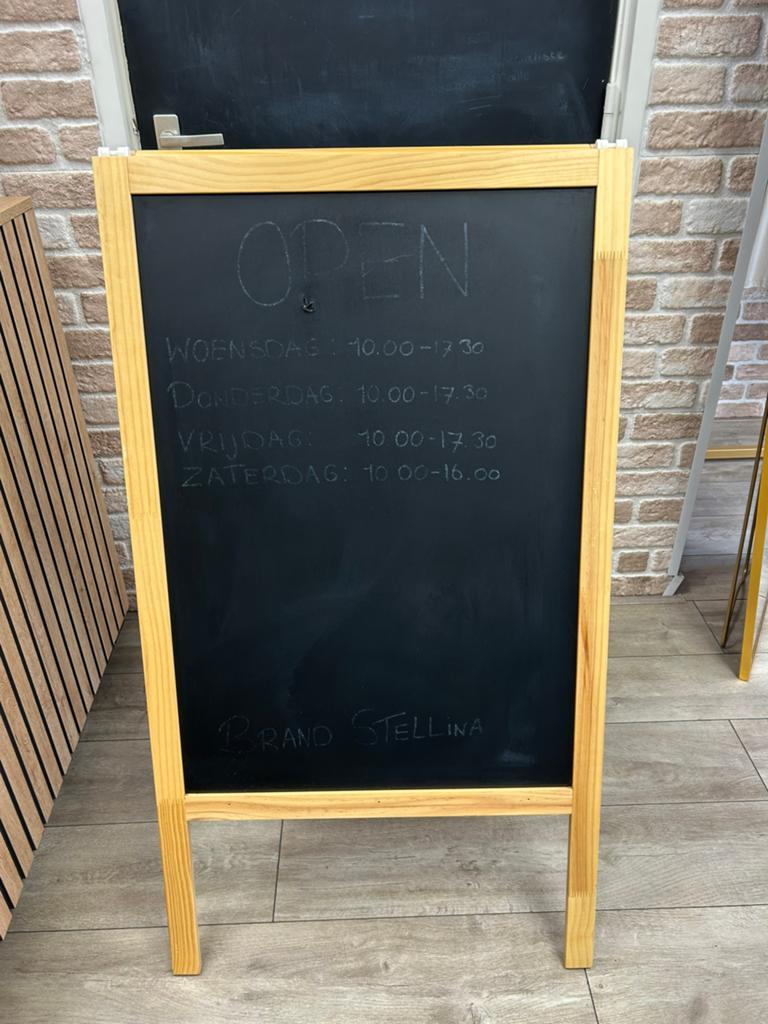 OPEN
WOENSDAG: 10.00-17.30
DONDERDAG: 10.00-17.30
VRIJDAG: 10.00-17.30
ZATERDAG: 10.00-16.00
BRAND STELLINA